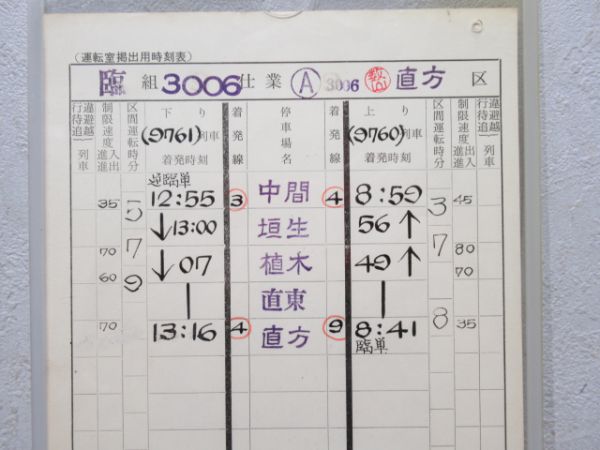 (運転室掲出用時刻表)
臨 組 3006 仕業 Ⓐ 3006 直方 区
行違 待避 追越 列車 制限速度 進入 進出 区間運転時分 下り (9761)列車 着発時刻 着発線 停車場名 着発線 上り (9760)列車 着発時刻 区間運転時分 制限速度 進出 進入 行違 待避 追越 列車
臨単
35 12:55 ③ 中間 ④ 8:59 3 45
5 ↓13:00 垣生 56↑
70 7 7 80
60 ↓07 植木 49↑ 70
9 | 直東 | 8
70 13:16 ④ 直方 ⑨ 8:41 35
臨単